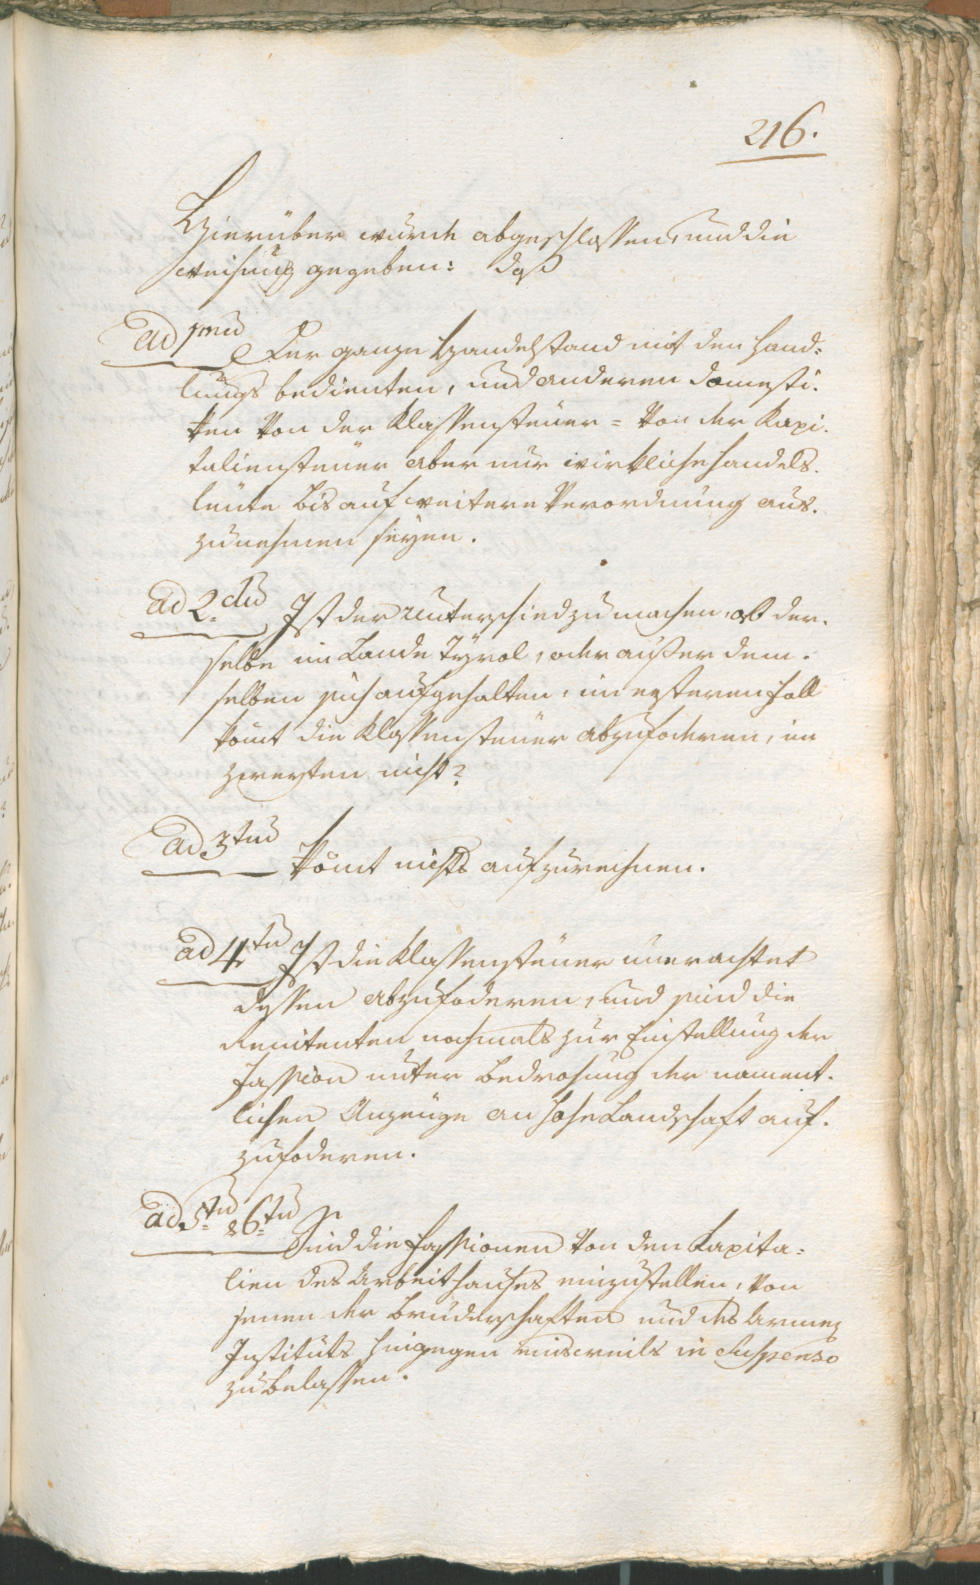 216.
Hierüber wurde abgeschlossen, und die
Weisung gegeben: daß
ad 1mũ Der ganze Handelstand mit den Hand=
lungs bedienten, und anderen Domesti.
ken von der Klassensteuer = von der Kapi.
taliensteuer aber nur wirkliche Handels.
leute bis auf weitere Verordnung aus.
zunehmen seyen.
ad 2.dũ Ist der unterschied zu machen, ob der.
selbe im Lande Tyrol, oder außer dem.
selben sich aufgehalten, im ersteren Fall
kömt die Klassensteuer abzufoderen, im
zweyten nicht?
ad 3tiũ Kömt nichts aufzurechnen.
ad 4tũ Ist die Klassensteuer unerachtet
dessen abzufoderen, und sind die
Renitenten nochmals zur Einstellung der
Fassion unter Bedrohung der nament.
lichen Anzeuge an hohe Landschaft auf.
zufoderen.
ad 5.tũ & 6=tũ Sind die Fassionen von den Kapita=
lien des Arbeithauses einzustellen, von
jenen der Bruderschaften und des Armen
Instituts hingegen einsweils in Suspenso
zu belassen.